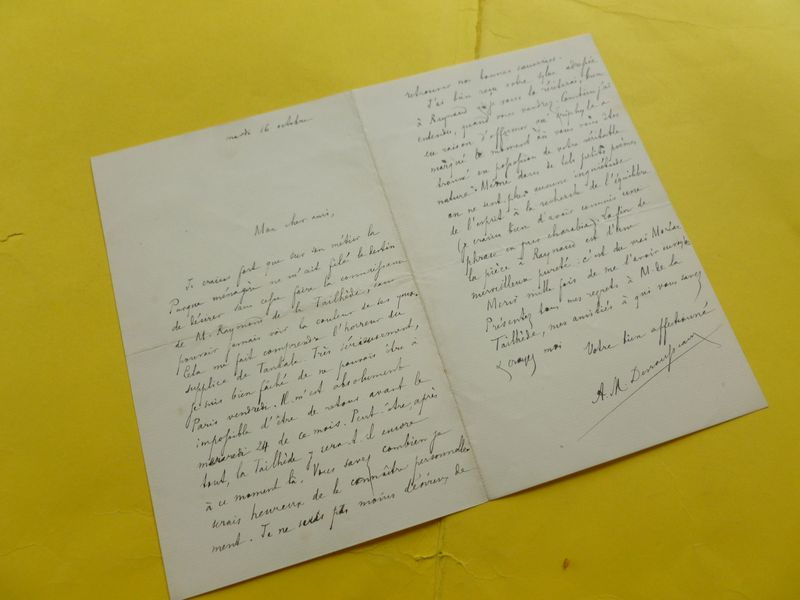 mardi 16 octobre
Mon cher ami,
Je crains fort que sur son métier la
Parque ménagère ne m'ait filé le destin
de désirer sans cesse faire la connaissance
de M. Raymond de la Tailhède, sans
pouvoir jamais voir la couleur de ses yeux.
Cela me fait comprendre l'horreur du
supplice de Tantale. Très sérieusement,
je suis bien fâché de ne pouvoir être à
Paris vendredi. Il m'est absolument
impossible d'être de retour avant le
mercredi 24 de ce mois. Peut-être, après
tout, la Tailhède y sera-t-il encore
à ce moment là. Vous savez combien je
serais heureux de le connaître personnelle-
ment. Je ne suis pas moins désireux de
retrouver nos bonnes causeries.
J'ai bien reçu votre
à Raynaud
entendu, quand vous voudrez. Combien j'ai
eu raison d'affirmer qu'Eriphyle a
marqué le moment où vous vous êtes
trouvé en possession de votre véritable
nature. Même dans de tels petits poèmes,
on ne sent plus aucune inquiétude
de l'esprit à la recherche de l'équilibre
(je crains bien d'avoir commis une
phrase en pur charabia). La fin de
la pièce à Raynaud est d'une
merveilleuse pureté: c'est du vrai Moréas.
Merci mille fois de me l'avoir envoyée.
Présentez tous mes regrets à M. de la
Tailhède, mes amitiés à qui vous savez
& croyez moi
Votre bien affectionné
A. M. Desrousseaux